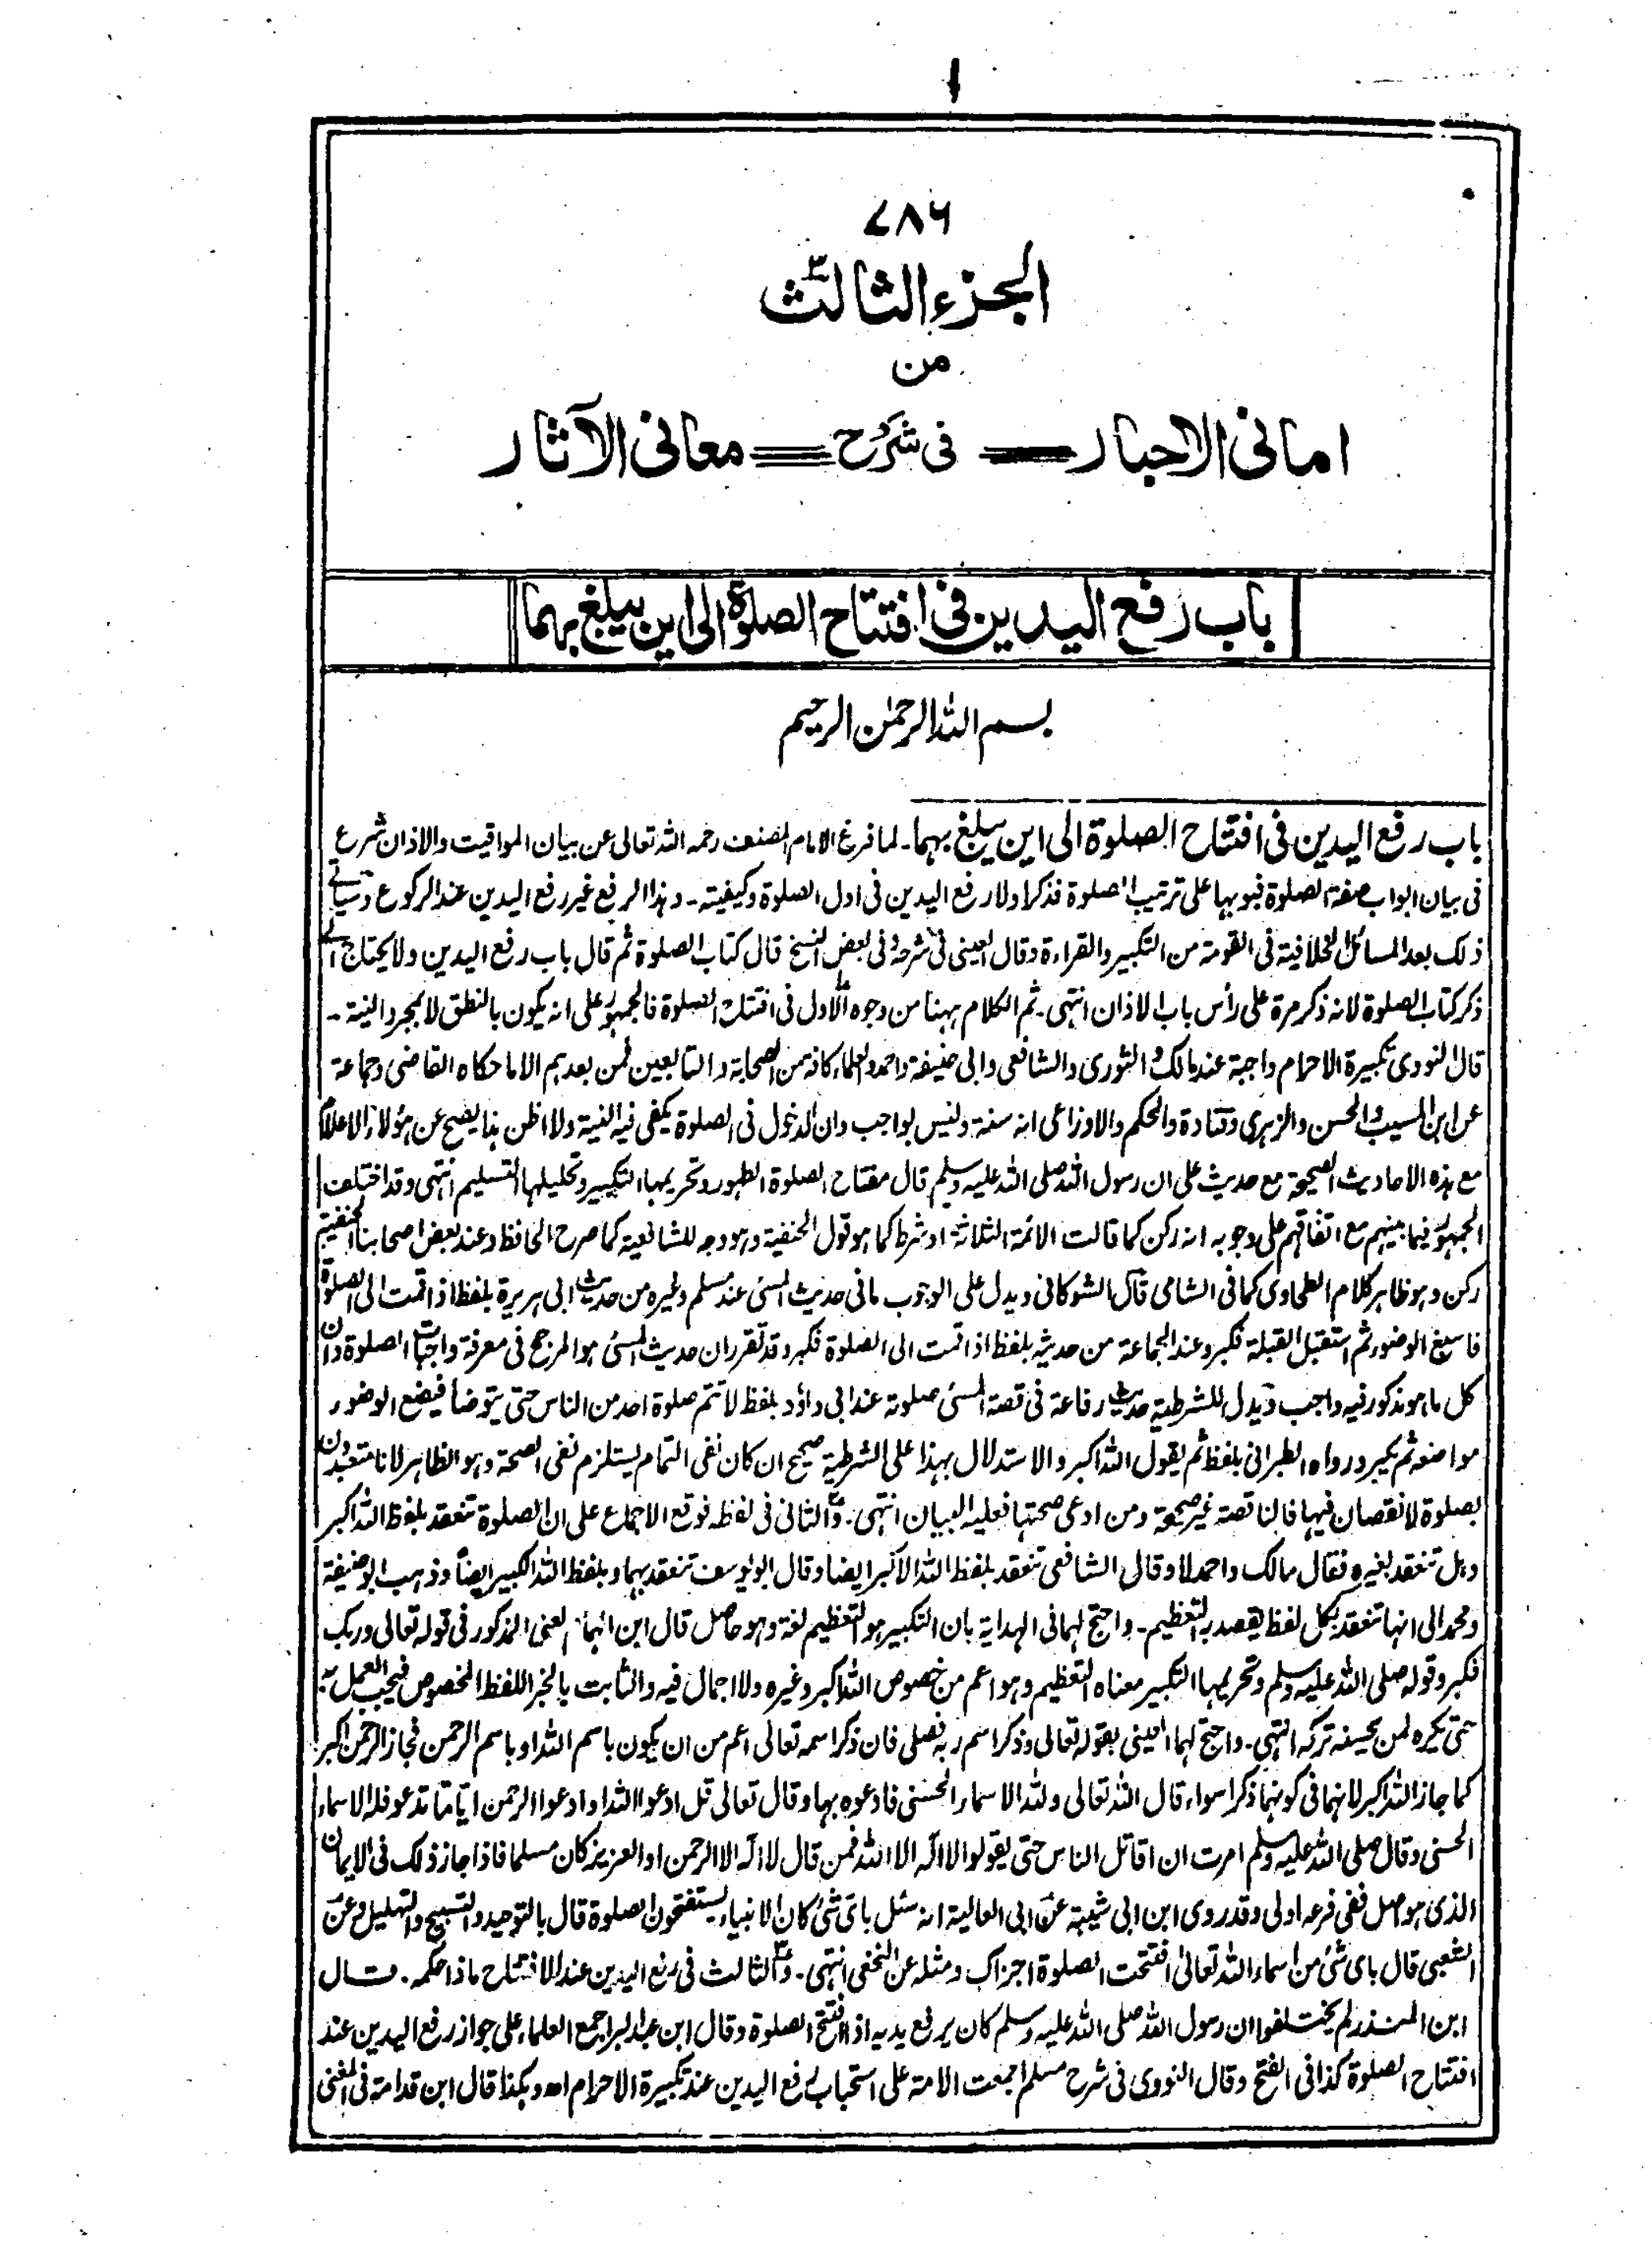 ۷۸۶
الجزء الثالث
من
امانی الاحبار فی شرح معانی الآثار
باب رفع الیدین فی افتتاح الصلوٰة الی این یبلغ بهما
بسم اللہ الرحمٰن الرحیم
باب رفع الیدین فی افتتاح الصلوة الی این یبلغ بهما۔ لما فرغ الامام المصنف رحمه اللہ تعالی عن بیان المواقیت والاذان شرع
فی بیان ابواب صفة الصلوة فبوبها علی ترتیب الصلوة فذکر اولا رفع الیدین فی اول الصلوة وکیفیته۔ وہذا الرفع غیر رفع الیدین عند الرکوع وسیأتی
ذلک بعد المسائل الخلافیة فی القومة من التکبیر والقراءة وقال العینی فی شرحه وفی بعض النسخ قال کتاب الصلوة ثم قال باب رفع الیدین ولا یحتاج الی
ذکر کتاب الصلوة لانه ذکر مرة علی رأس باب الاذان انتہی۔ ثم الکلام ہہنا من وجوہ الاول فی افتتاح الصلوة فالجمہور علی انه یکون بالنطق لا بمجرد النیة۔
قال النووی تکبیرة الاحرام واجبة عند مالک والثوری والشافعی وابی حنیفة واحمد والعلماء کافة من الصحابة والتابعین فمن بعدہم الا ما حکاہ القاضی وجماعة
عن ابن المسیب والحسن والزہری وقتادة والحکم والاوزاعی انه سنة ولیس بواجب وان الدخول فی الصلوة یکفی فیه النیة ولا اظن ہذا یصح عن ہؤلاء الاعلام
مع ہذہ الاحادیث الصحیحة مع حدیث علی ان رسول اللہ صلی اللہ علیہ وسلم قال مفتاح الصلوة الطہور وتحریمہا التکبیر وتحلیلہا التسلیم انتہی وقد اختلف
الجمہور فیما بینہم مع اتفاقہم علی وجوبه انه رکن کما قالت الائمة الثلاثة او شرط کما ہو قول الحنفیة وہو وجه للشافعیة کما صرح الحافظ وعند بعض اصحابنا الحنفیة
رکن وہو ظاہر کلام الطحاوی کما فی الشامی قال الشوکانی ویدل علی الوجوب ما فی حدیث المسئ عند مسلم وغیرہ من حدیث ابی ہریرة بلفظ اذا قمت الی الصلوة
فاسبغ الوضوء ثم استقبل القبلة فکبر وعند الجماعة من حدیثه بلفظ اذا قمت الی الصلوة فکبر وقد تقرر ان حدیث المسئ ہو المرجع فی معرفة واجبات الصلوة وان
کل ما ہو مذکور فیه واجب ویدل للشرطیة حدیث رفاعة فی قصة المسئ صلوته عند ابی داؤد بلفظ لا تتم صلوة احد من الناس حتی یتوضأ فیضع الوضوء
مواضعه ثم یکبر ورواہ الطبرانی بلفظ ثم یقول اللہ اکبر والاستدلال بہذا علی الشرطیة صحیح ان کان نفی التمام یستلزم نفی الصحة وہو الظاہر لانا متعبدون
بصلوة لا نقصان فیہا فالناقصة غیر صحیحة ومن ادعی صحتہا فعلیه البیان انتہی۔ والثانی فی لفظه فوقع الاجماع علی ان الصلوة تنعقد بلفظ اللہ اکبر
وہل تنعقد بغیرہ فقال مالک واحمد لا وقال الشافعی تنعقد بلفظ اللہ الاکبر ایضا وقال ابو یوسف تنعقد بہما وبلفظ اللہ الکبیر ایضاً وذہب ابو حنیفة
ومحمد الی انہا تنعقد بکل لفظ یقصد به التعظیم۔ واحتج لہما فی الہدایة بان التکبیر ہو التعظیم لغة وہو حاصل قال ابن الہمام یعنی المذکور فی قوله تعالی وربک
فکبر وقوله صلی اللہ علیہ وسلم وتحریمہا التکبیر معناہ التعظیم وہو اعم من خصوص اللہ اکبر وغیرہ ولا اجمال فیه والثابت بالخبر اللفظ المخصوص فیجب العمل به
حتی یکرہ لمن یحسنه ترکه انتہی۔ واحتج لہما العینی بقوله تعالی وذکر اسم ربه فصلی فان ذکر اسمه تعالی اعم من ان یکون باسم اللہ او باسم الرحمن فجاز الرحمن اکبر
کما جاز اللہ اکبر لانہما فی کونہما ذکرا سواء قال اللہ تعالی وللہ الاسماء الحسنی فادعوہ بہا وقال تعالی قل ادعوا اللہ او ادعوا الرحمن ایّاً مّا تدعوا فله الاسماء
الحسنی وقال صلی اللہ علیہ وسلم امرت ان اقاتل الناس حتی یقولوا لا اله الا اللہ فمن قال لا اله الا الرحمن او العزیز کان مسلما فاذا جاز ذلک فی الایمان
الذی ہو اصل ففی فرعه اولی وقد روی ابن ابی شیبة عن ابی العالیة انه سئل بای شئ کان الانبیاء یستفتحون الصلوة قال بالتوحید والتسبیح والتہلیل وعن
الشعبی قال بای شئ من اسماء اللہ تعالی افتتحت الصلوة اجزاک ومثله عن النخعی انتہی۔ والثالث فی رفع الیدین عند الافتتاح ما ذا حکمه۔ قال
ابن المنذر لم یختلفوا ان رسول اللہ صلی اللہ علیہ وسلم کان یرفع یدیه اذا افتتح الصلوة وقال ابن عبدالبر اجمع العلماء علی جواز رفع الیدین عند
افتتاح الصلوة کذا فی الفتح وقال النووی فی شرح مسلم اجمعت الامة علی استحباب رفع الیدین عند تکبیرة الاحرام اھ وہکذا قال ابن قدامة فی المغنی